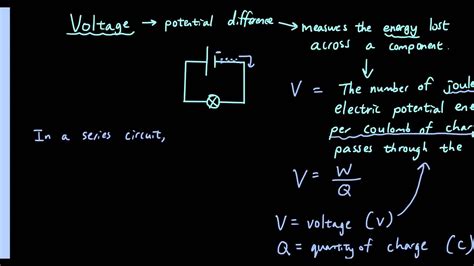 Voltage → potential difference → measures the energy lost
across a component.
V = The number of joule
electric potential ene
per coulomb of char
passes through the
In a series circuit,
V = W
Q
V = voltage (V)
Q = quantity of charge (C)